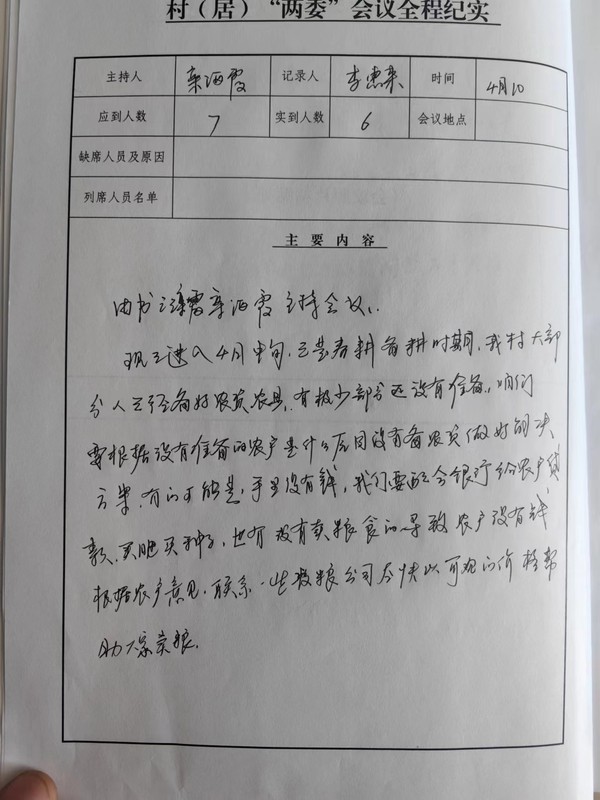 村（居）“两委”会议全程纪实
主持人 栾海霞 记录人 李惠荣 时间 4月10
应到人数 7 实到人数 6 会议地点
缺席人员及原因
列席人员名单
主要内容
由书记 栾海霞主持会议：
现已进入4月中旬，已是春耕备耕时期，我村大部
分人已经备好农资农具，有极少部分还没有准备，咱们
要根据没有准备的农户是什么原因没有备农资做好解决
方案，有的可能是，手里没有钱，我们要配合银行给农户贷
款，买肥买种子，也有没有卖粮食的导致农户没有钱
根据农户意见，联系一些收粮公司尽快以可观的价格帮
助大家卖粮。